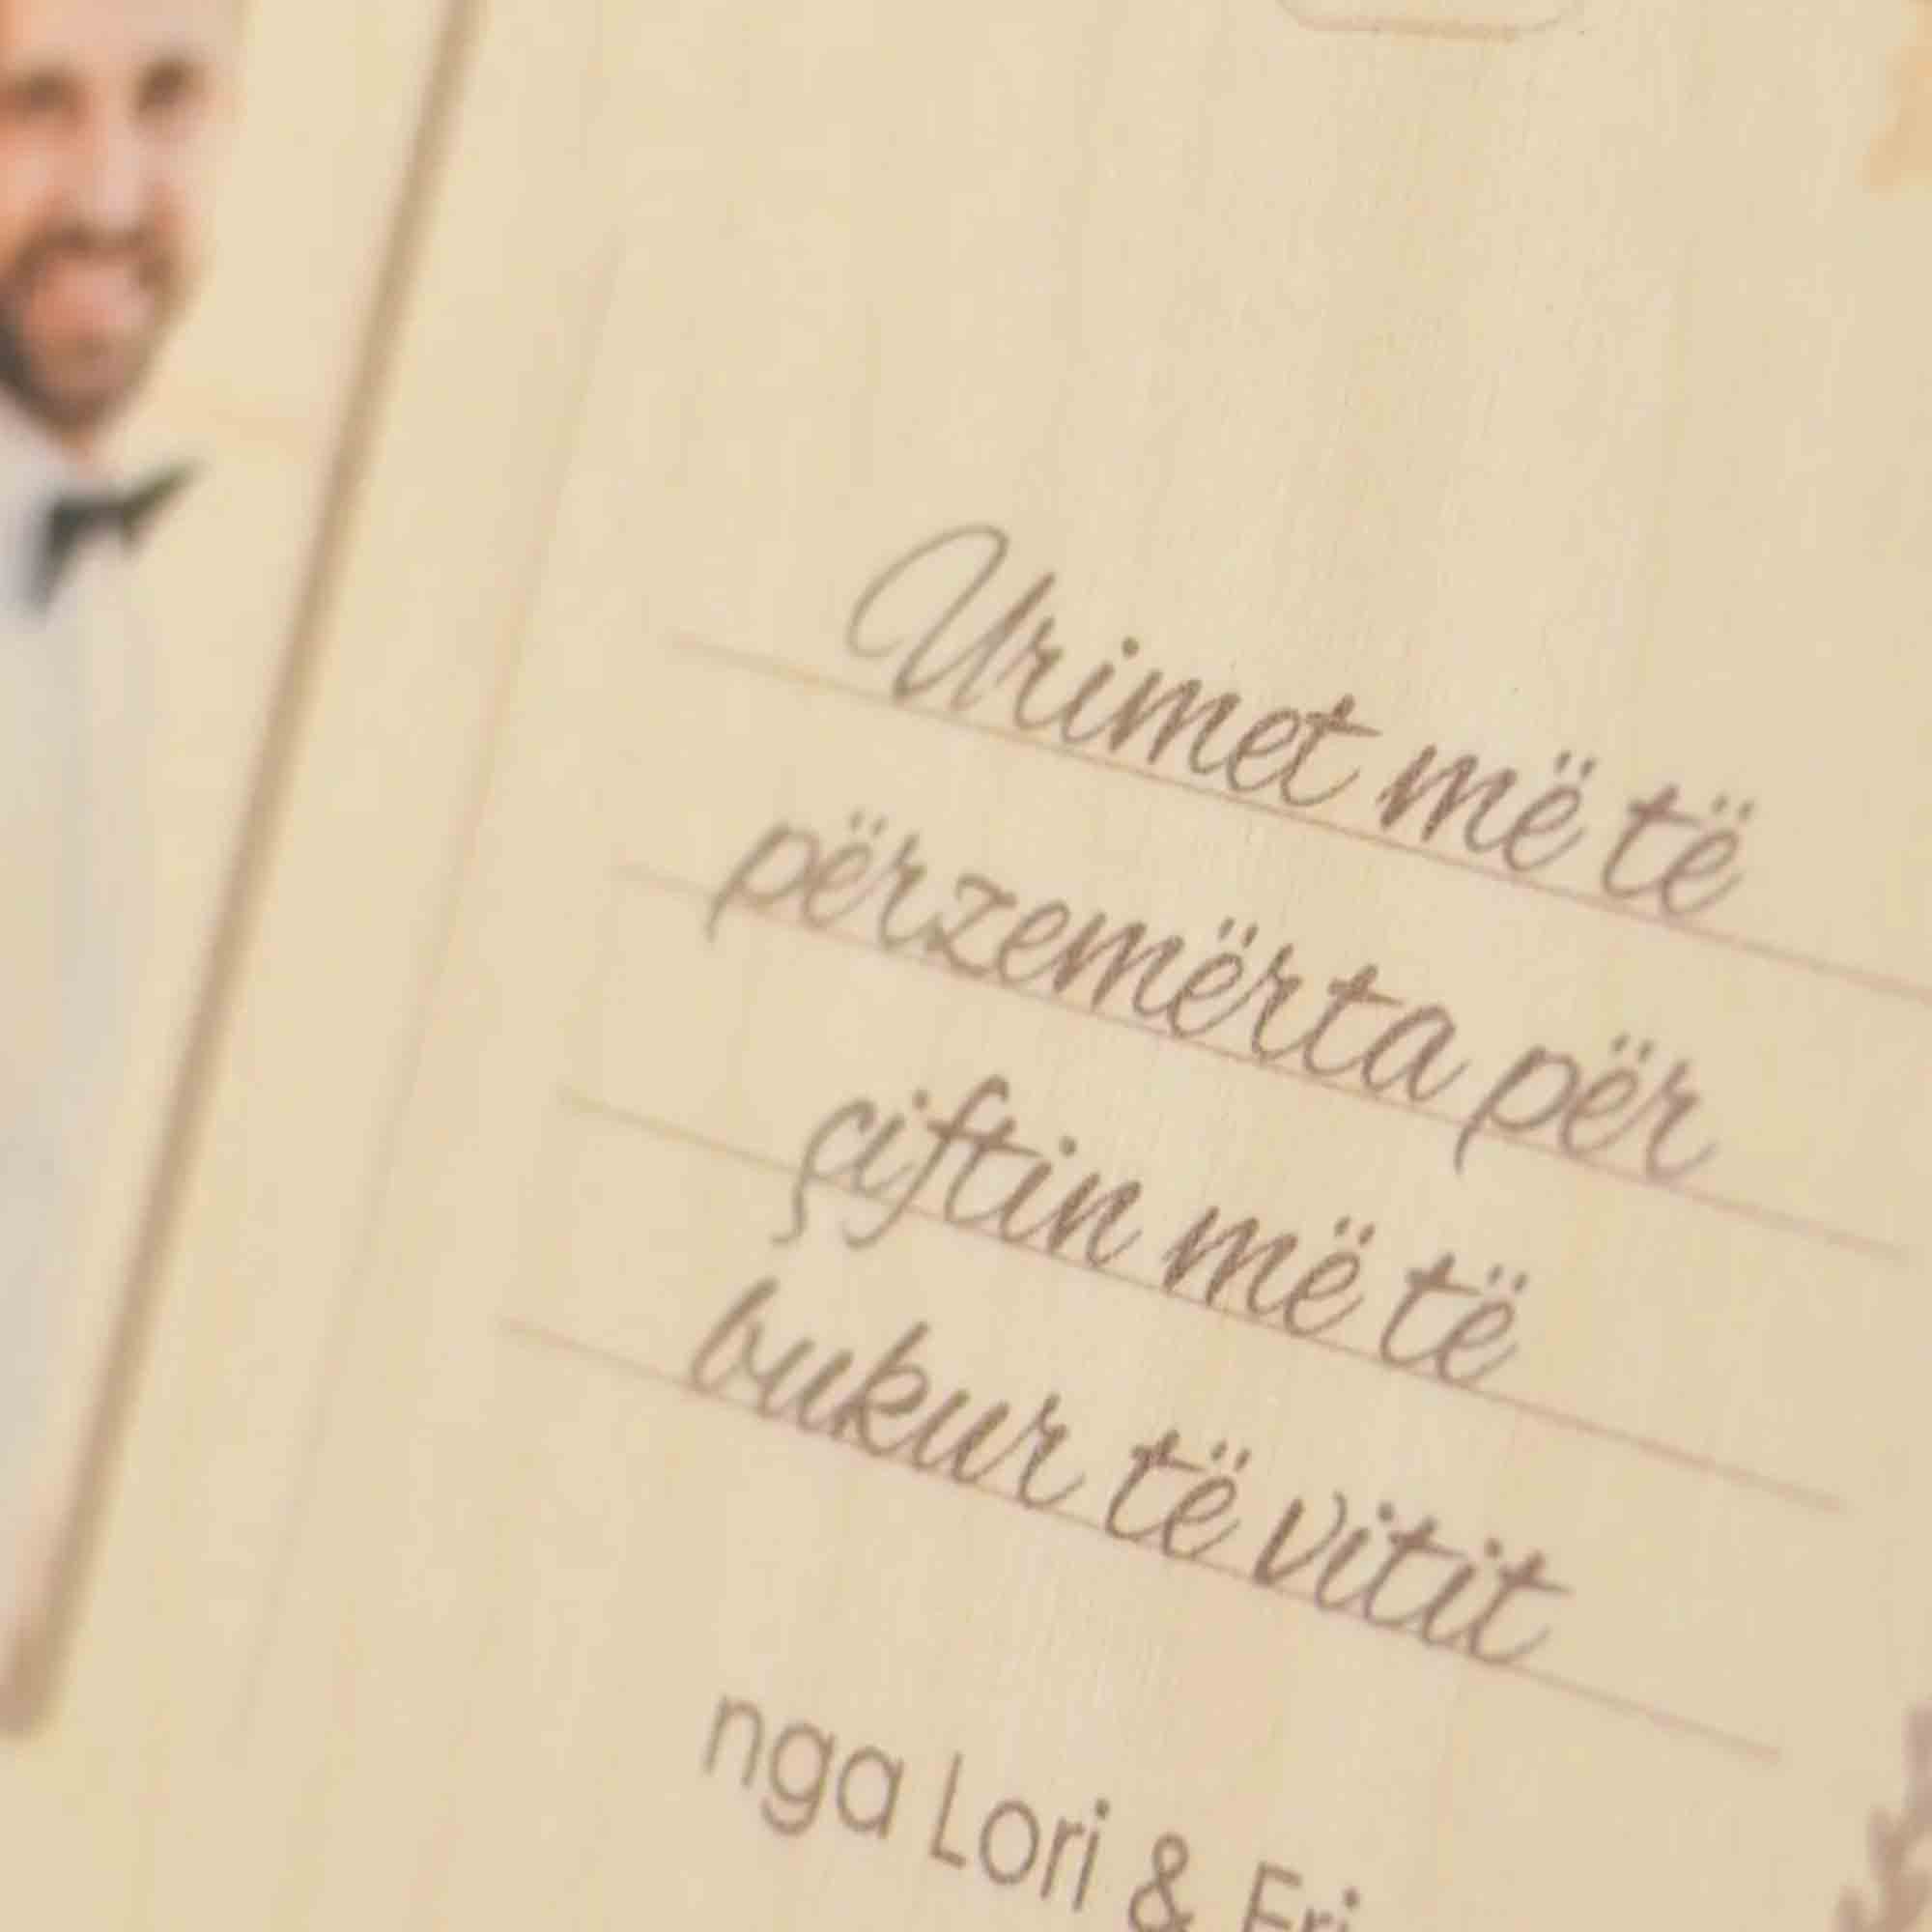 Urimet më të
përzemërta për
çiftin më të
bukur të vitit
nga Lori &